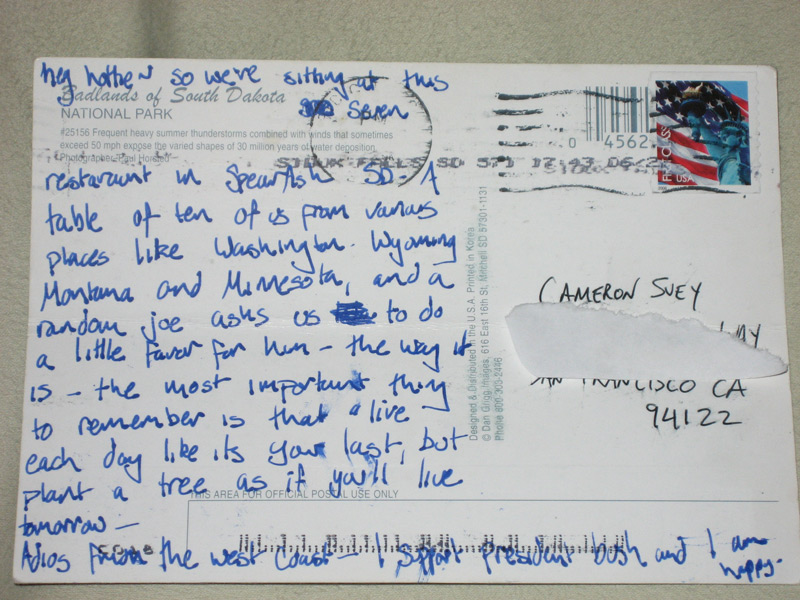 hey hottie so we're sitting at this
Badlands of South Dakota
NATIONAL PARK
seven
#25156 Frequent heavy summer thunderstorms combined with winds that sometimes
exceed 50 mph expose the varied shapes of 30 million years of water deposition.
Photographer: Paul Horsted
SIOUX FALLS SD 571 17:43 06-2
restaraunt in Spearfish SD. A
table of ten of us from various
places like Washington. Wyoming
Montana and Minnesota, and a
random joe asks us to do
a little favor for him - the way it
is - the most important thing
to remember is that alive -
each day like its your last, but
plant a tree as if you'll live
tomorrow -
Adios from the west coast - I support President bush and I am
happy.
THIS AREA FOR OFFICIAL POSTAL USE ONLY
Designed & Distributed in the U.S.A. Printed in Korea
© Dan Grigg Images, 616 East 16th St, Mitchell SD 57301-1131
Phone 800-303-2446
0 4562
FIRST-CLASS
USA
CAMERON SUEY
WAY
SAN FRANCISCO CA
94122